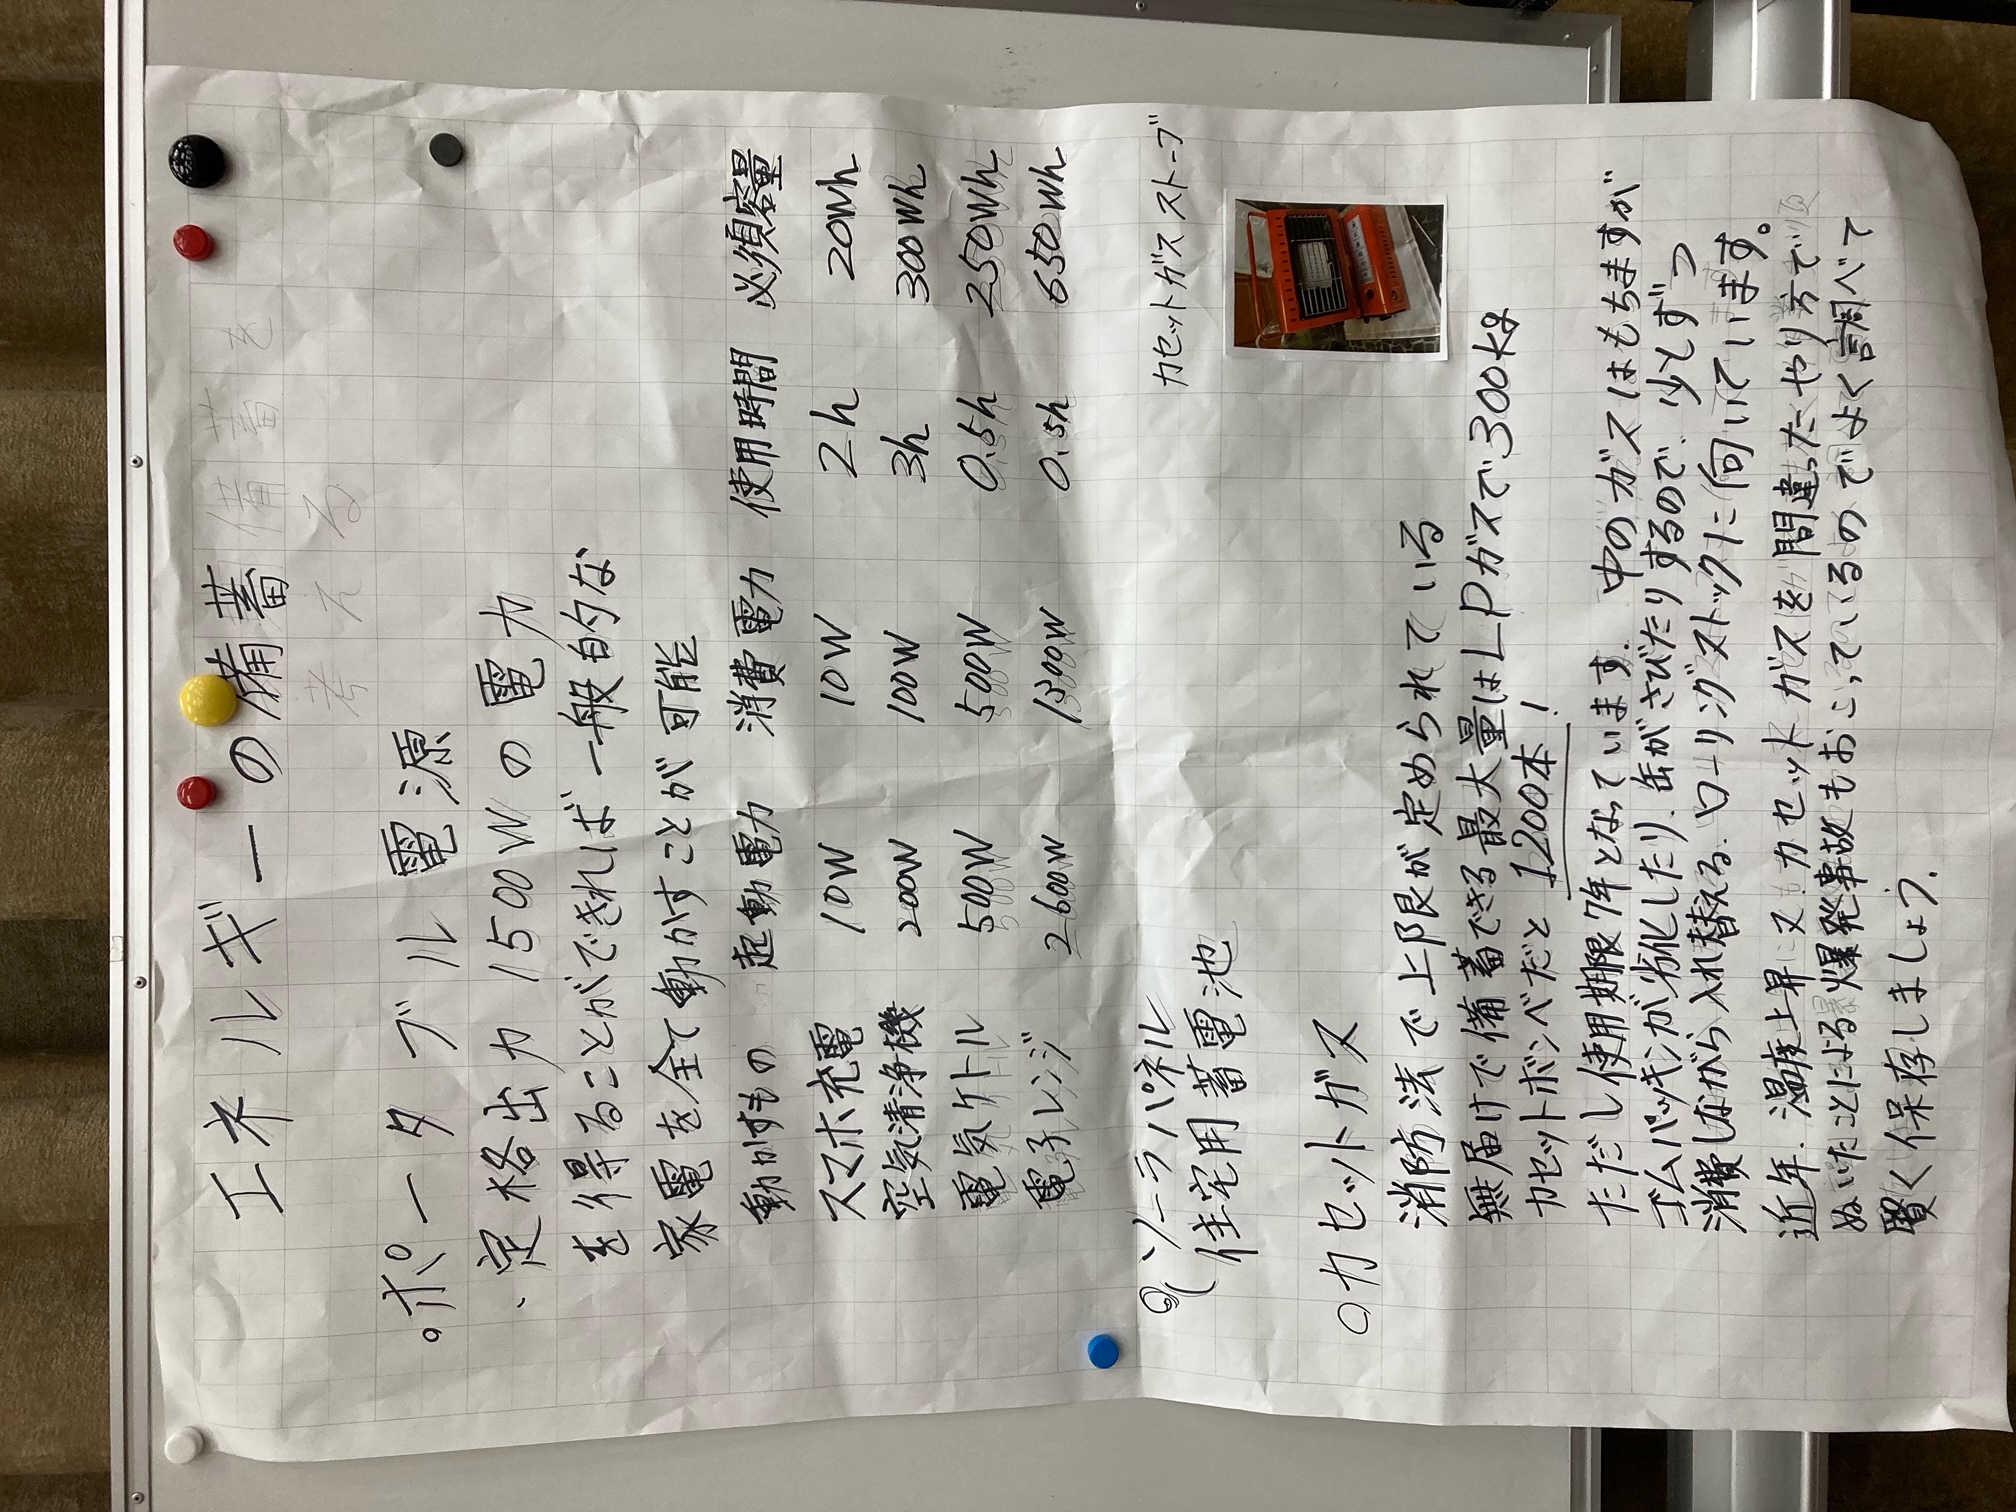 エネルギーの備蓄
備蓄を
考える
ポータブル電源
・定格出力1500Wの電力
を得ることができれば一般的な
家電を全て動かすことが可能
動かすもの 起動電力 消費電力 使用時間 必須容量
スマホ充電 10W 10W 2h 20Wh
空気清浄機 200W 100W 3h 300Wh
電気ケトル 500W 500W 0.5h 250Wh
電子レンジ 2600W 1300W 0.5h 650Wh
ソーラパネル
住宅用蓄電池
カセットガスストーブ
○カセットガス
消防法で上限が定められている
無届けで備蓄できる最大量はLPガスで300kg
カセットボンベだと1200本!
ただし使用期限7年となっています. 中のガスはもちますが
ゴムパッキンが劣化したり、缶がさびたりするので、少しずつ
消費しながら入れ替える、ローリングストックに向いています。
近年、温度上昇 カセットガスを間違ったやり方で
ぬいたことによる爆発事故もおこっているのでよく調べて
賢く保存しましょう.